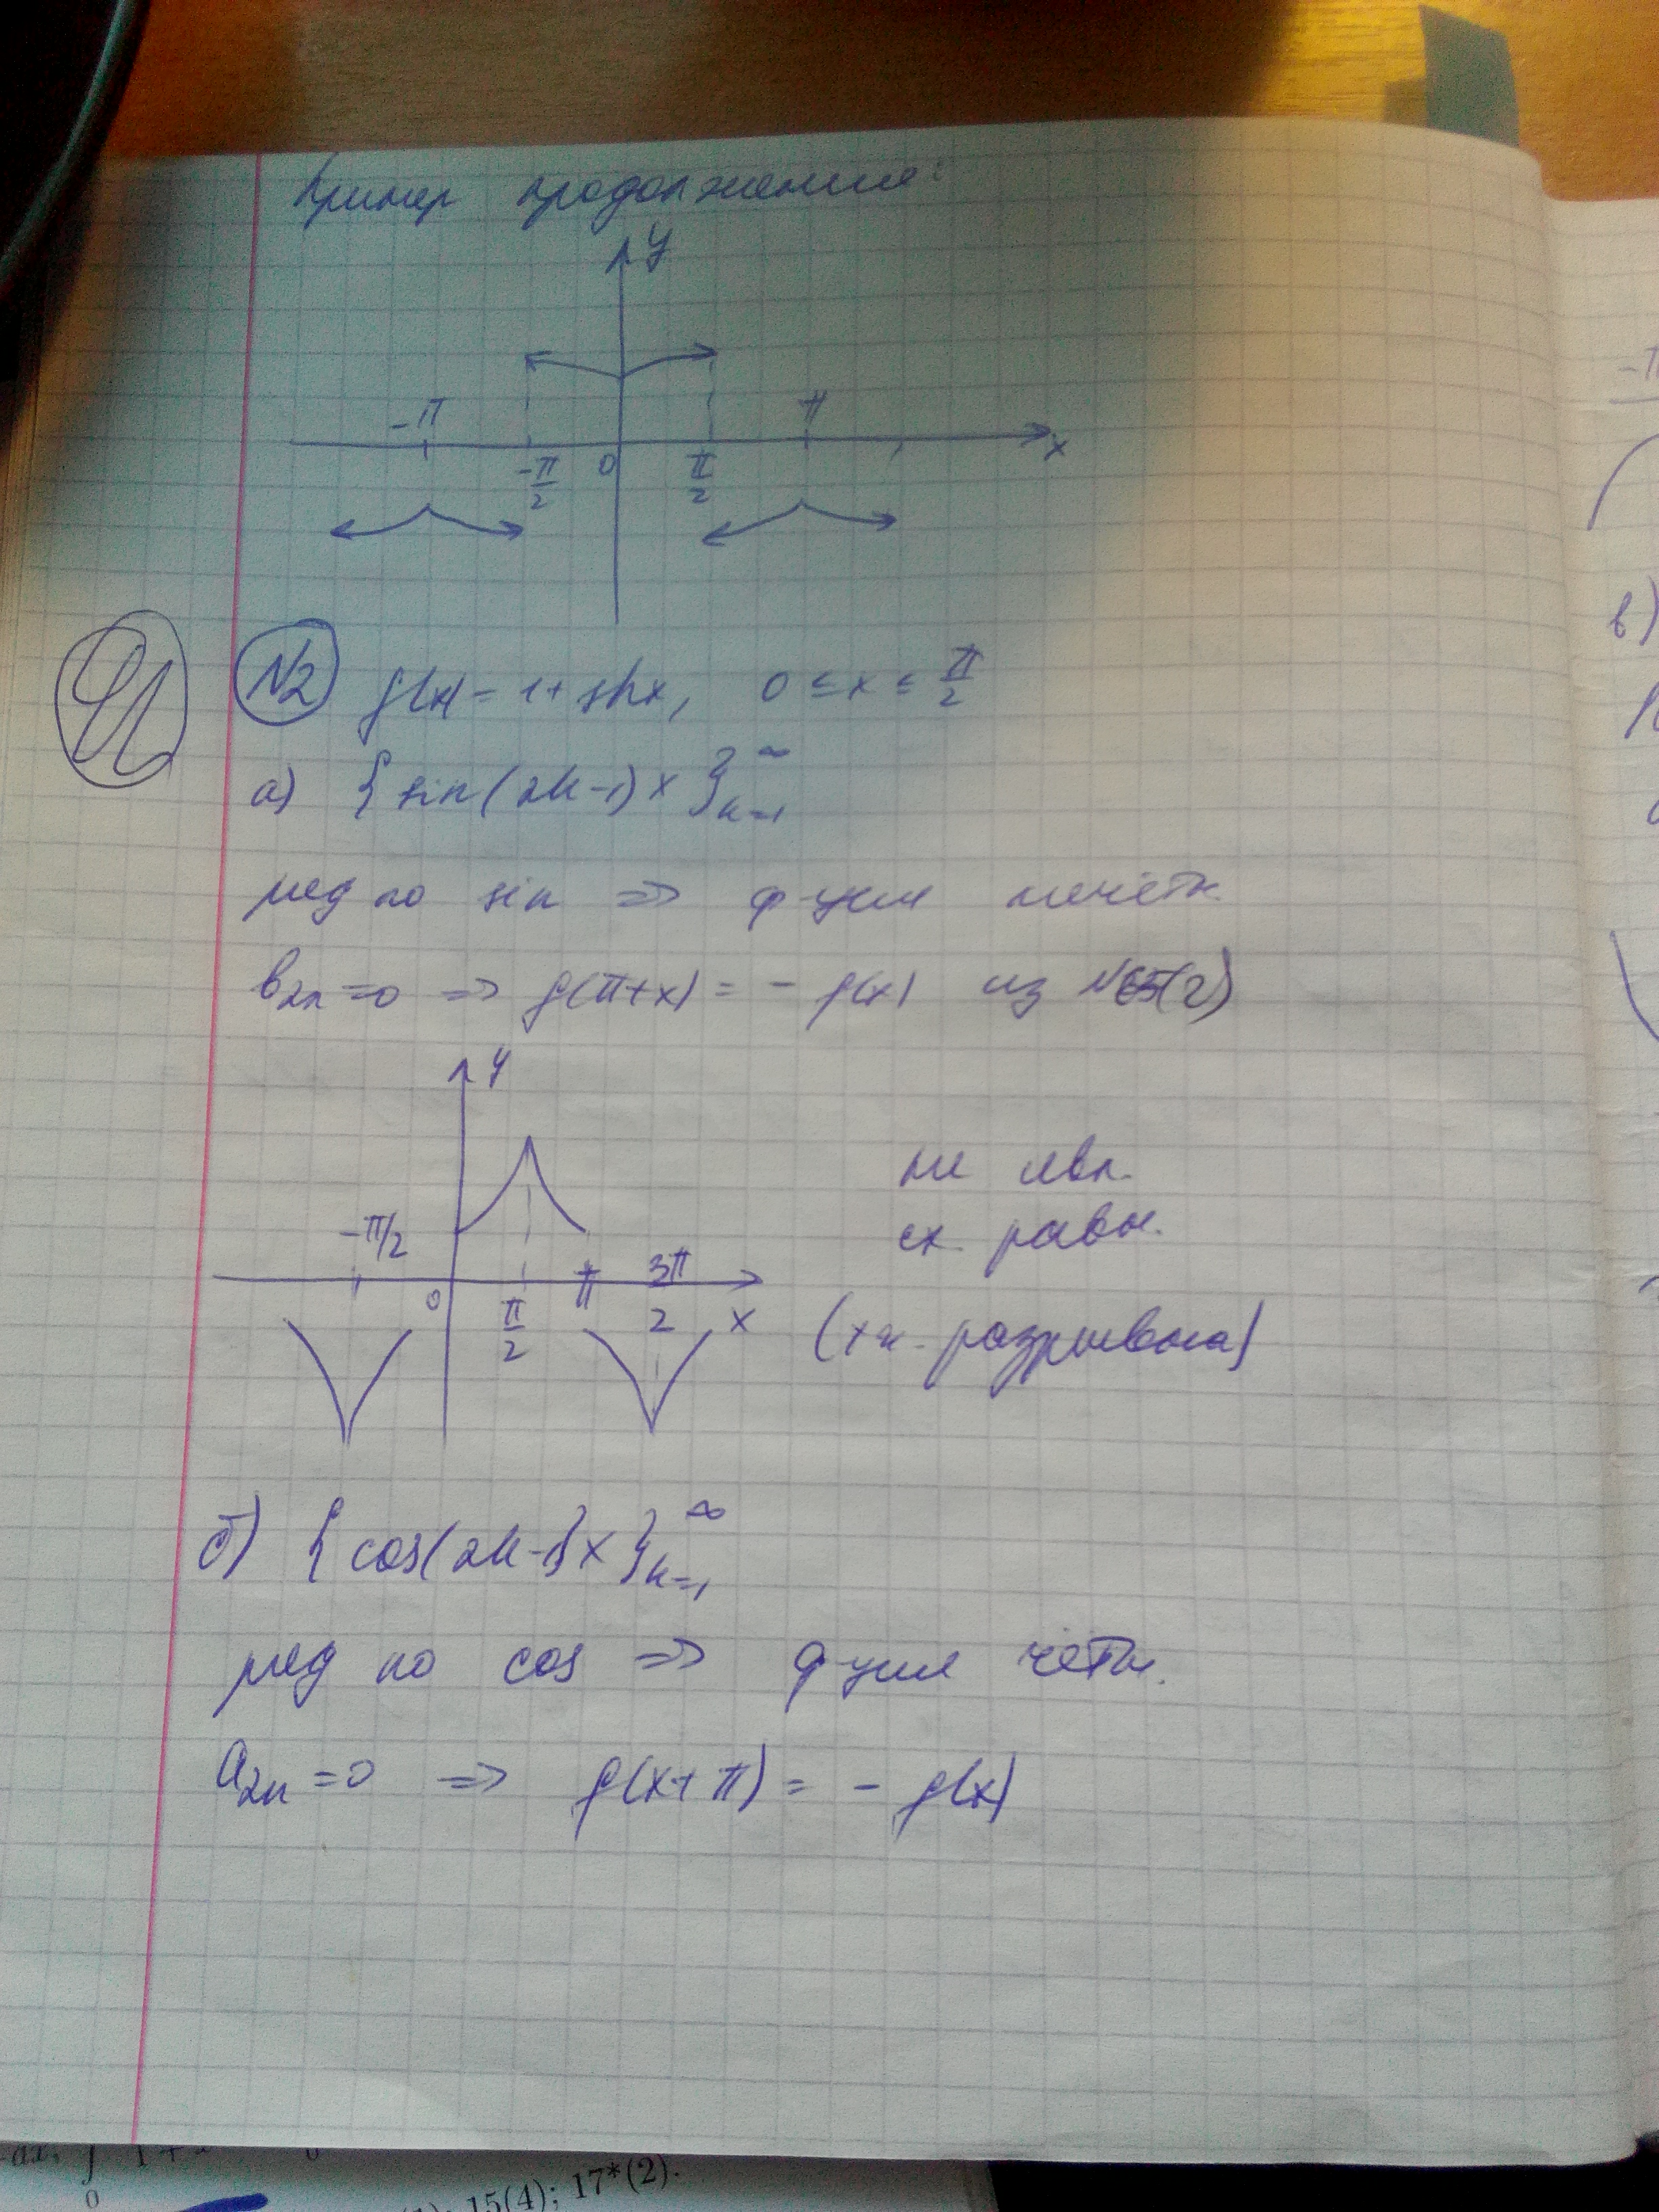 Пример продолжения:
y
-π π
-π/2 0 π/2 x
№2 f(x) = 1 + sh x, 0 ≤ x ≤ π/2
а) { sin(2k-1)x }_{k=1}^∞
ряд по sin => ф-ция нечетн.
b_{2n} = 0 => f(π+x) = - f(x) из №65(2)
y
не явл.
сх. равн.
-π/2 0 π/2 π 3π/2 x
(т.к. разрывна)
б) { cos(2k-1)x }_{k=1}^∞
ряд по cos => ф-ция четн.
a_{2n} = 0 => f(x+π) = - f(x)
-π
в)
0
15(4); 17*(2).